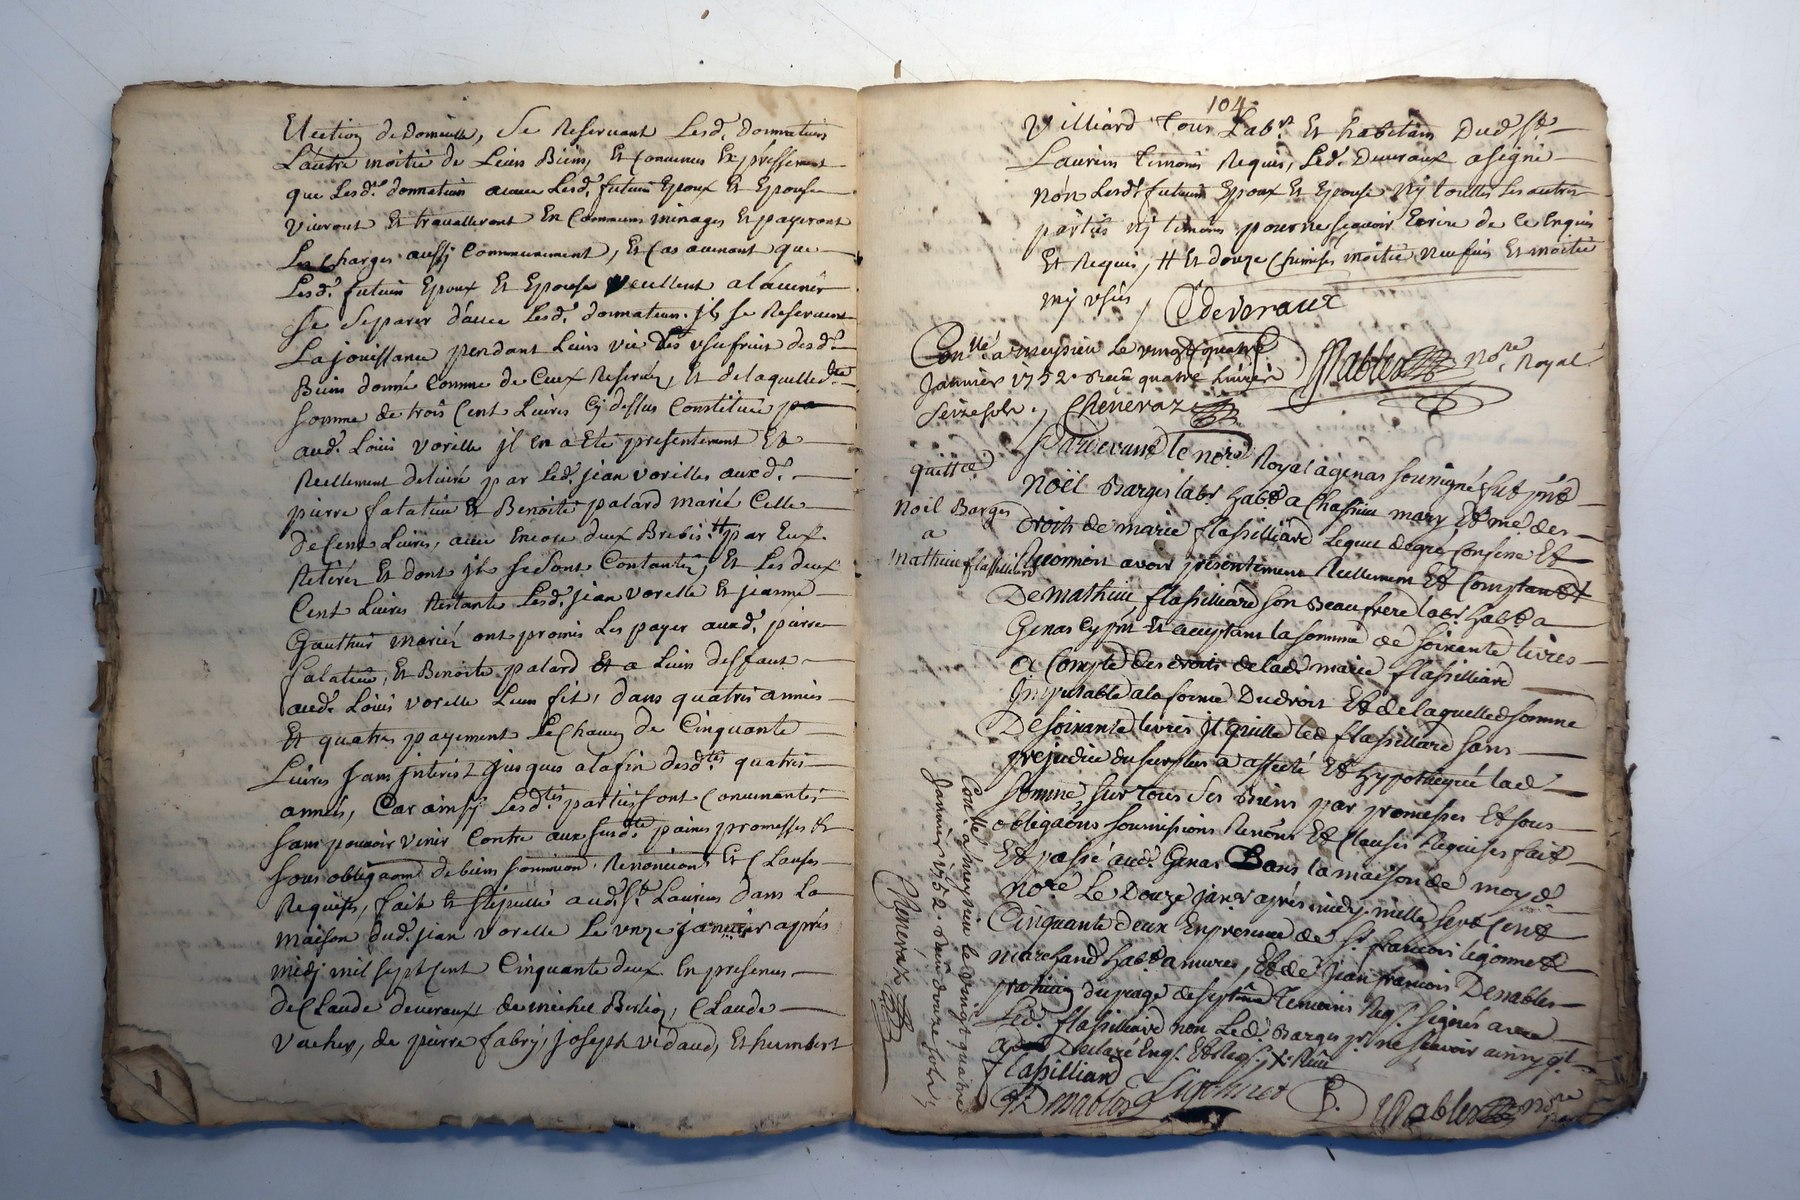 Election de Domicille, Se Reservant Lesd. donnateurs
L'autre moitié de Leurs Biens, Et Convenus Expressement
que Lesd. donnateurs avec Lesd. futurs Epoux Et Epouse
vivront Et travailleront En Communs minages Et payeront
Les Charges aussy Communement, Et Cas avenant que
Lesd. futurs Epoux Et Epouse veullent alavenir
Se Separer d'avec Lesd. donnateurs, jls se Reservent
La jouissance pendant Leurs vie des usufruit desd.
Biens donné Comme de Ceux Reservez, Et de laquelled.
somme de trois Cent Livres Cy dessus Constituée
aud. Louis vorelle jl en a Eté presentement Et
Reellement delivré par Led. jean vorelles auxd.
pierre falatieu Et Benoite palard marié Celle
de Cent Livres, avec Encore deux Brebis # par Eux
Retirez Et dont jls se sont Contantez, Et Les deux
Cent Livres Restante Lesd. jean vorelle Et jeanne
Gauthier mariéz ont promis Les payer auxd. pierre
falatieu, Et Benoite palard Et a Leurs deffaut
aud. Louis vorelle Leur fils, dans quatres années
Et quatres payement Le Chaun de Cinquante
Livres sans jnterist jusques alafin desdtes quatres
année, Car ainsy Lesdtes parties sont Convenantes
sans pouvoir venir Contre aux susdte paines promesses Et
sous obligaons de biens soumission, Renoncions Et Clauses
Requises, fait Et stipullé aud. St. Laurens dans La
maison dud. jean vorelle Le onze janvier après
midj mil sept Cent Cinquante deux En presence
de Claude deveraux de michel Berlioz, Claude
Vacher, de pierre fabry, joseph vidaud, Et humbert
104
Villiard Tous Labrs Et habitans Dud. St.
Laurens temoins Requis, Led. Deveraux a signé
non Lesd. futurs Epoux Et Epouse ny touttes Les autres
parties ny temoins pour ne sçavoir Ecrire de Ce Enquis
Et Requis, # Et douze Chemises moitié Neufves Et moitié
my usés
C deveraux
Conllé a meysieu Le vingt quatre
Janvier 1752. Reçu quatre livres
seize sols. Cheneraz
Nables Nore. Royal
quittce.
Noël Barges
a
Mathieu flassilliard
Pardevant le nore. Royal a genas soussigné fut pnt
Noël Barges labr. habt. a Chassieu mary Et me. des
droits de marie flassilliard Lequel de gré Confesse Et
Reconnoit avoir presentement Reellement Et Comptant
De mathieu flassilliard son Beaufrere labr. habt. a
Genas Cy pnt Et acceptant la somme de soixante livres
a Compte des droits de lad. marie flassilliard
Imputable a la forme Du droit Et de laquelled. somme
De soixante livres jl quitte led. flassilliard sans
prejudice du surplus a affecté Et hypothequé lad.
somme sur tous ses Biens par promesses Et sous
obligaons soumissions Renons Et Clauses Requises fait
Et passé aud. Genas Dans la maison de moyd.
nore Le Douze janv. après midy mille sept Cent
Cinquante deux En presence de sr. francois ligonnet
marchand habt. a mures, Et de jean francois Denables
praticien du peage de septeme temoins Req. signés avec
Led. flassilliard non Led. Barges pr ne scavoir ainsy ql
a Declaré Enq. Et Req.
flassilliard
Denables Ligonnet Nables Nore
Conllé a meysieu le vingt quatre
Janvier 1752. Reçu douze sols
Cheneraz